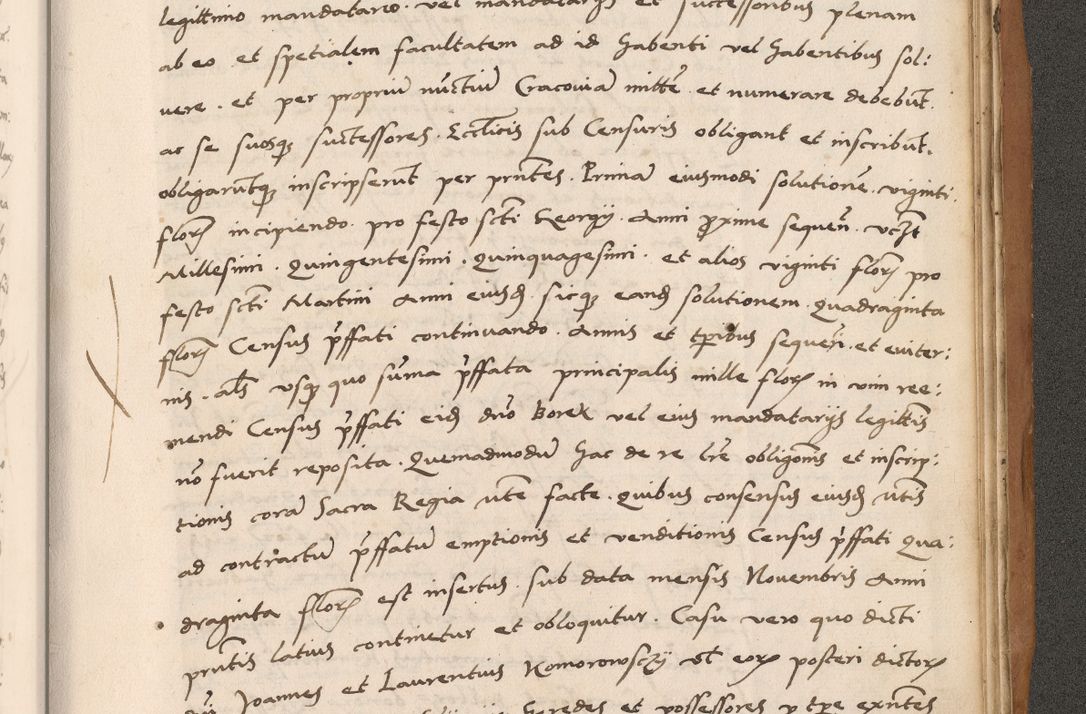 legittimo mandatario vel mandatarijs et successoribus plenam
ab eo et spetialem facultatem ad id habenti vel habentibus sol:
vere. et per propriũ nũctiũ Cracoviã mittẽ et numerare debebũt.
ac se suosq̃ suctessores. Ecctlicis sub Censuris obligant et inscribũt.
obligarũtq̃ inscripserũt per pñtes. Primã eiusmodi solutionẽ. viginti
floreñ incipiendo. pro festo scti Georgij. Anni p̃xime sequeñ. vczt
Millesimi. Quingentesimi. quinquagesimi. et alios viginti floreñ pro
festo scti Martini Anni eiusd̃. sicq̃ eand̃ solutionem quadraginta
floreñ Census p̃ffati continuando. Annis et tp̃ribus sequeñ. et eviter:
nis. als usq̃ quo sum̃a p̃ffata principalis mille floreñ in vim ree:
mendi Census p̃ffati eid̃ dño Borek vel eius mandatarijs legittis
nõ fuerit reposita. Quemadmodũ hac de re lr̃e obligonis et inscrip:
tionis corã Sacra Regia mte facte. quibus consensus eiusd̃ mtis
ad contractũ p̃ffatũ emptionis et venditionis Census p̃ffati Qua:
draginta floreñ est insertus. sub data mensis Novembris Anni
pr̃ntis latius continetur et obloquitur. Casu vero quo dicti
Joannes et Laurentius Komorowsczy vel eorũ posteri dictorũ
heredes et possessores p tp̃e exñtes